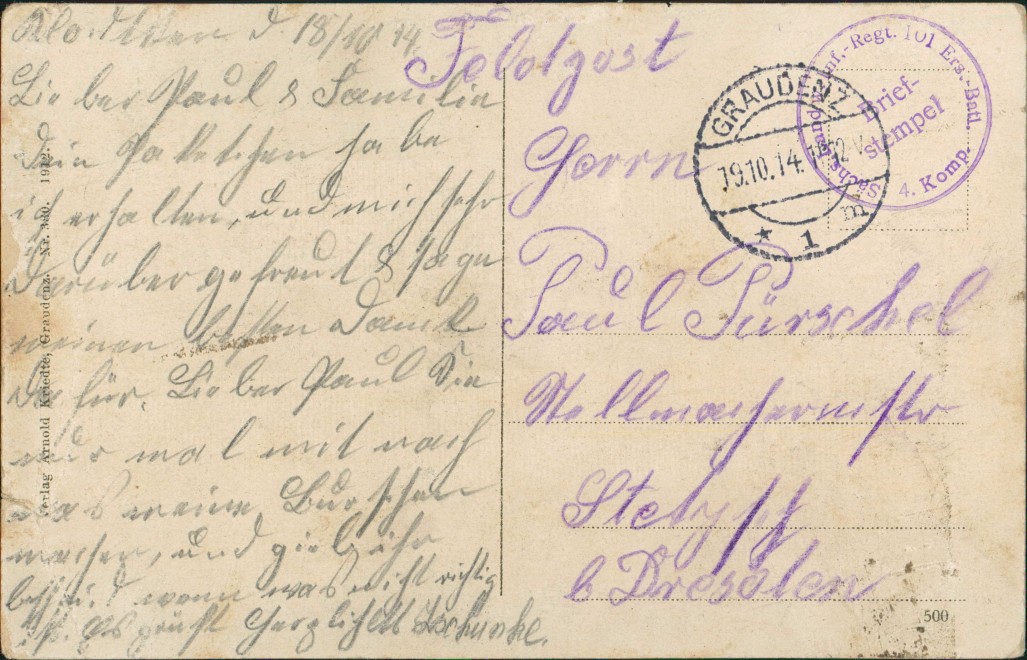 d. 18/10 14.
Lieber Paul & Familie
Dein Paketchen habe
ich erhalten, und mich sehr
darüber gefreut & sage
meinen besten Dank
dafür. Lieber Paul
nur mal mit nach
was meine Burschen
machen, und gieb ihr
wenn was nicht richtig
ist. Es grüßt herzlichst
Verlag Arnold Kriedte, Graudenz. Nr. 1912.
Feldpost
Herrn
Paul Pürschel
Stellmachermstr
b Dresden
GRAUDENZ
19.10.14. 11-12 V.
* 1 m
Inf.-Regt. 101 Ers.-Batl.
4. Komp.
Brief-
stempel
500